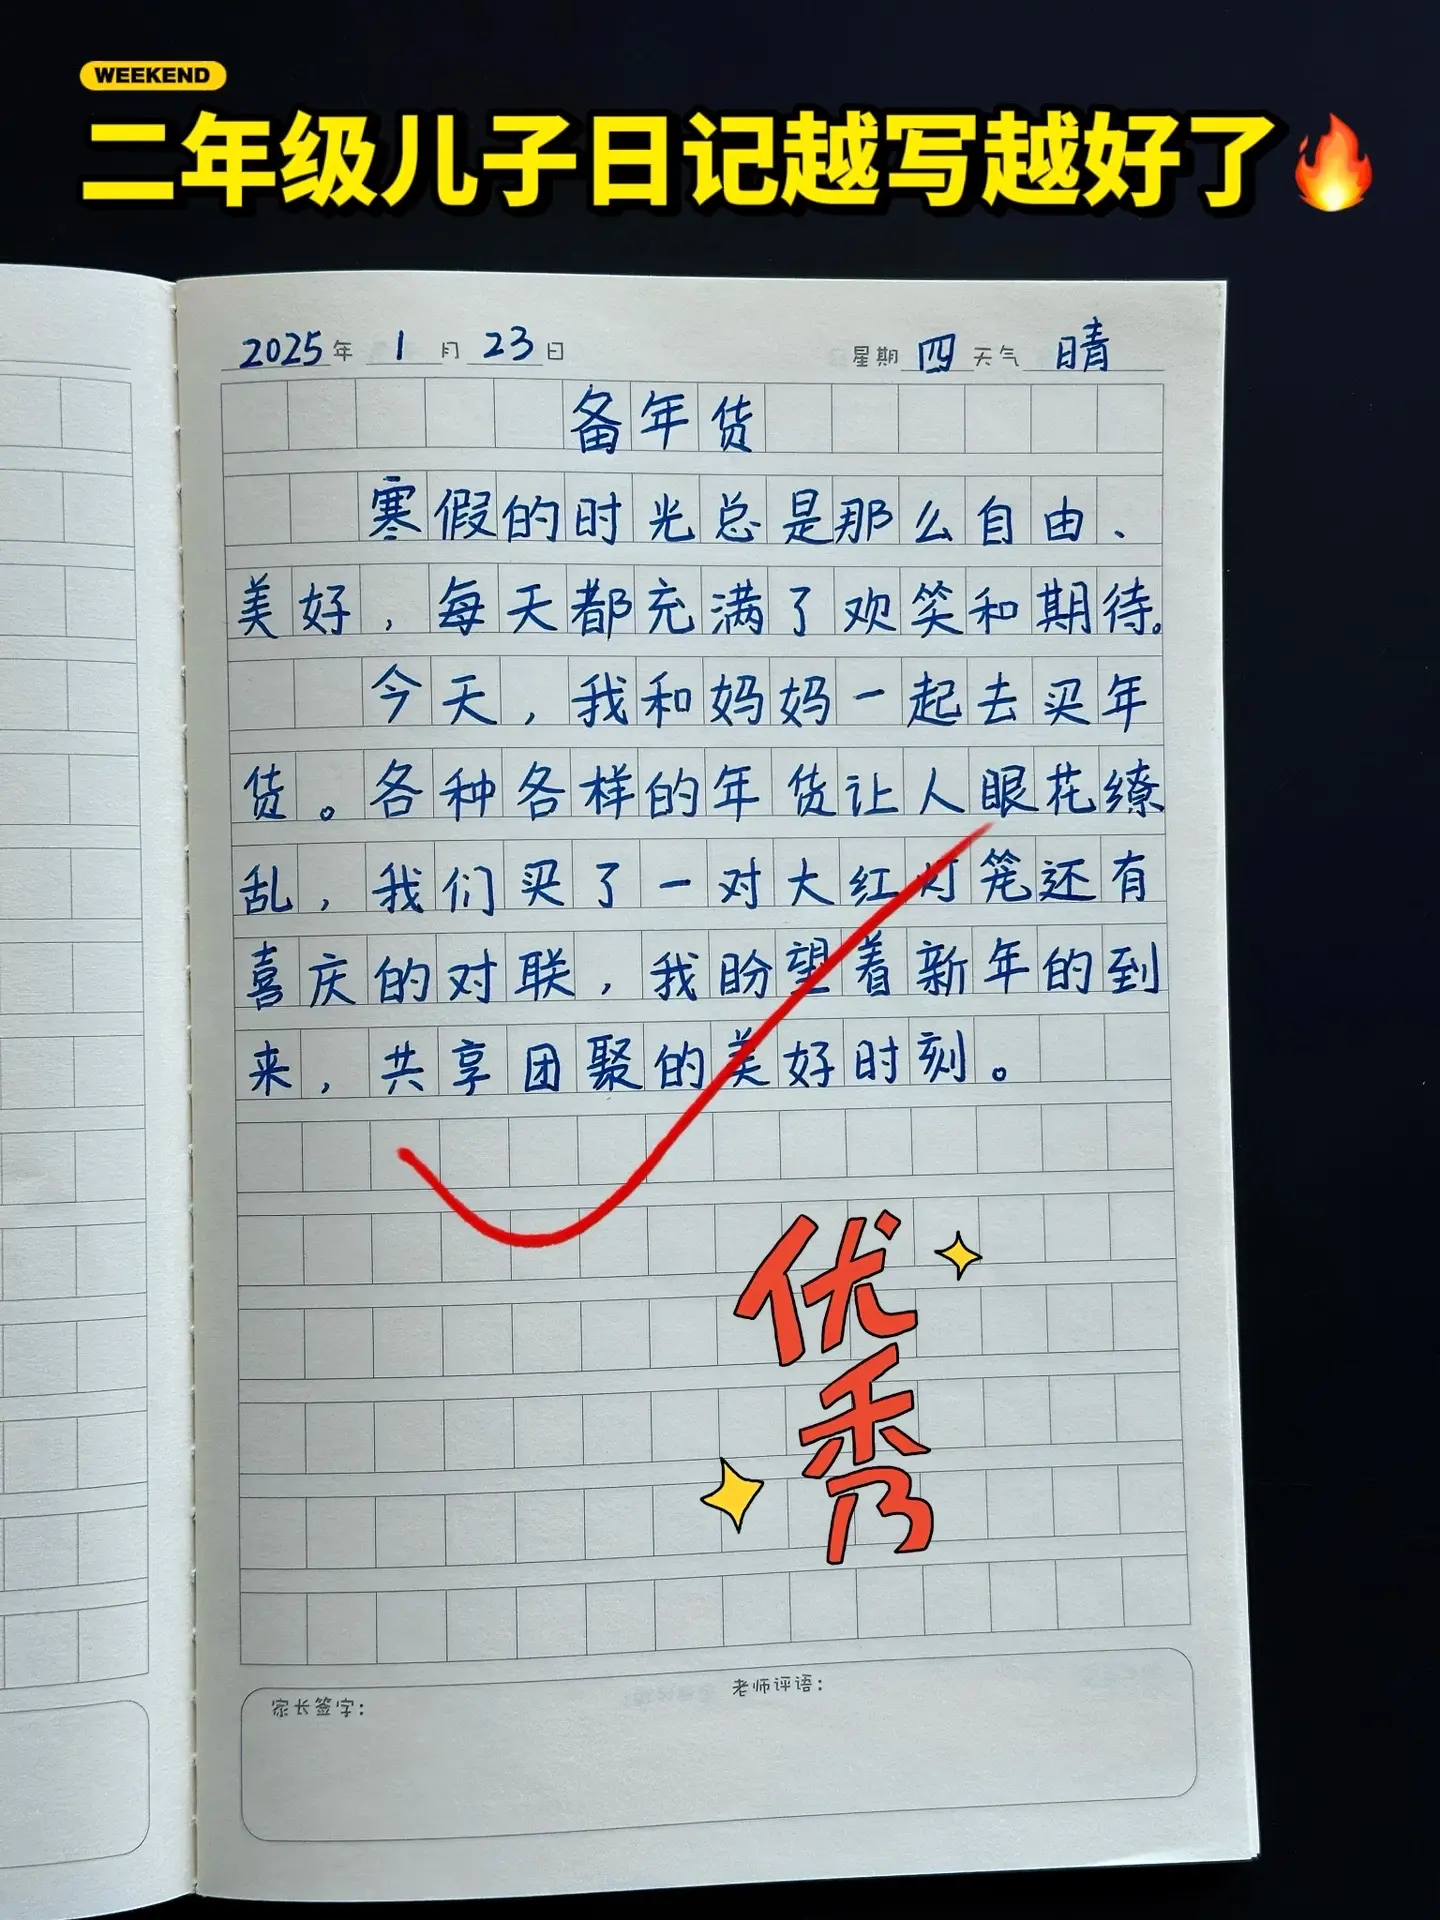 WEEKEND
二年级儿子日记越写越好了
2025年 1月 23日 星期四 天气 晴
备年货
寒假的时光总是那么自由、
美好，每天都充满了欢笑和期待。
今天，我和妈妈一起去买年
货。各种各样的年货让人眼花缭
乱，我们买了一对大红灯笼还有
喜庆的对联，我盼望着新年的到
来，共享团聚的美好时刻。
优秀
家长签字：
老师评语：